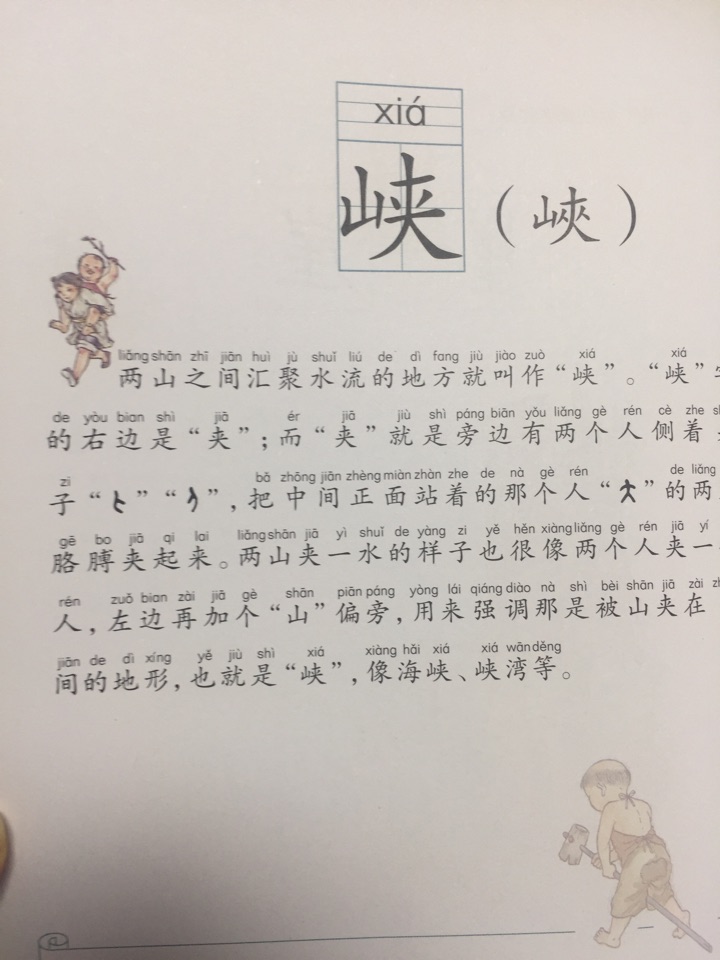 xiá
峡（峽）
liǎng shān zhī jiān huì jù shuǐ liú de dì fang jiù jiào zuò xiá xiá
两山之间汇聚水流的地方就叫作“峡”。“峡”
de yòu bian shì jiā ér jiā jiù shì páng biān yǒu liǎng gè rén cè zhe
的右边是“夹”；而“夹”就是旁边有两个人侧着
zi bǎ zhōng jiān zhèng miàn zhàn zhe de nà gè rén de liǎng
子“”“”，把中间正面站着的那个人“”的两
gē bo jiā qi lai liǎng shān jiā yì shuǐ de yàng zi yě hěn xiàng liǎng gè rén jiā yí
胳膊夹起来。两山夹一水的样子也很像两个人夹一
rén zuǒ bian zài jiā gè shān piān páng yòng lái qiáng diào nà shì bèi shān jiā zài
人，左边再加个“山”偏旁，用来强调那是被山夹在
jiān de dì xíng yě jiù shì xiá xiàng hǎi xiá xiá wān děng
间的地形，也就是“峡”，像海峡、峡湾等。